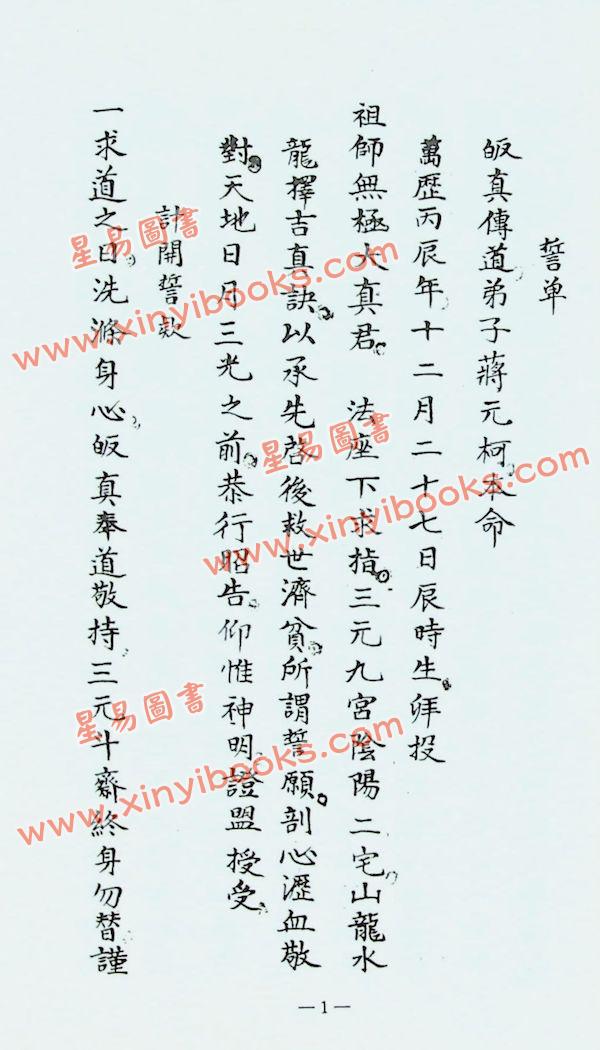 誓单
皈真傳道弟子蔣元柯本命
萬歷丙辰年十二月二十七日辰時生拜投
祖師無極大真君 法座下求指三元九宮陰陽二宅山龍水
龍擇吉真訣以承先啓後救世濟貧所謂誓願剖心瀝血敬
對天地日月三光之前恭行昭告仰惟神明證盟授受
計開誓款
一求道之日洗滌身心皈真奉道敬持三元斗齋終身勿替謹
—1—
星易圖書
www.xinyibooks.com
星易圖書
www.xinyibooks.com
星易圖書
www.xinyibooks.com